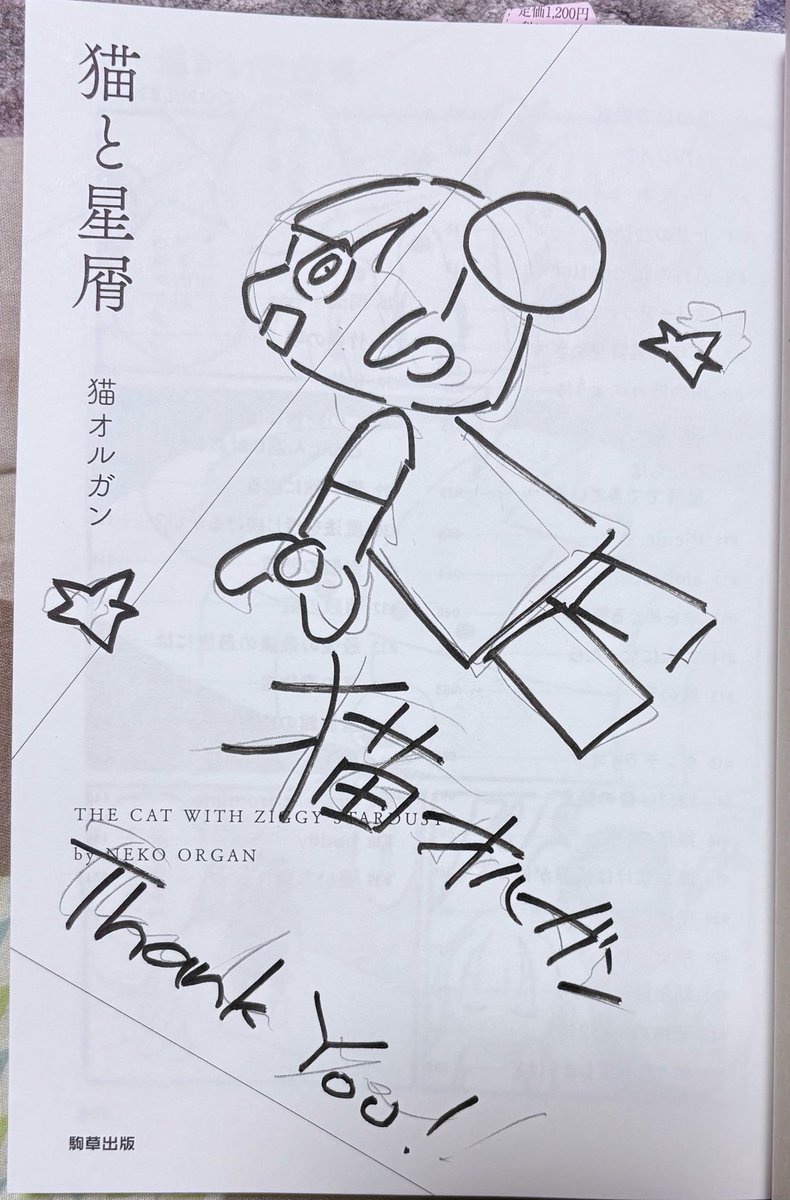 定価1,200円
猫と星屑
猫オルガン
猫オルガン
THE CAT WITH ZIGGY STARDUST
by NEKO ORGAN
Thank You!
駒草出版